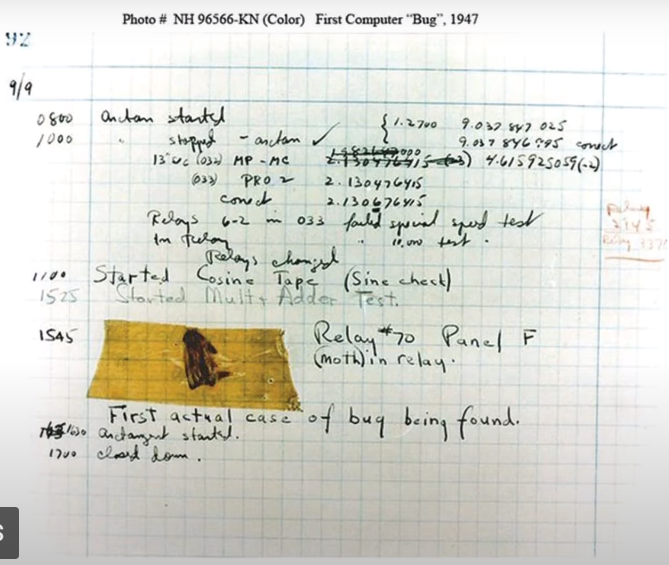 Photo # NH 96566-KN (Color) First Computer "Bug", 1947
92
9/9
0800 Antan started { 1.2700 9.037 847 025
1000 " stopped - antan ✓ 9.037 846 995 conect
13"uc (032) MP - MC 2.130476415 (-3) 4.615925059(-2)
(033) PRO 2 2.130476415
conect 2.130676415
Relays 6-2 in 033 failed special speed test
In Relay " 10,000 test .
Relay
2145
Relay 3370
Relays changed
1100 Started Cosine Tape (Sine check)
1525 Started Mult + Adder Test.
1545 Relay #70 Panel F
(Moth) in relay.
First actual case of bug being found.
1630 Antangent started.
1700 closed down.
S